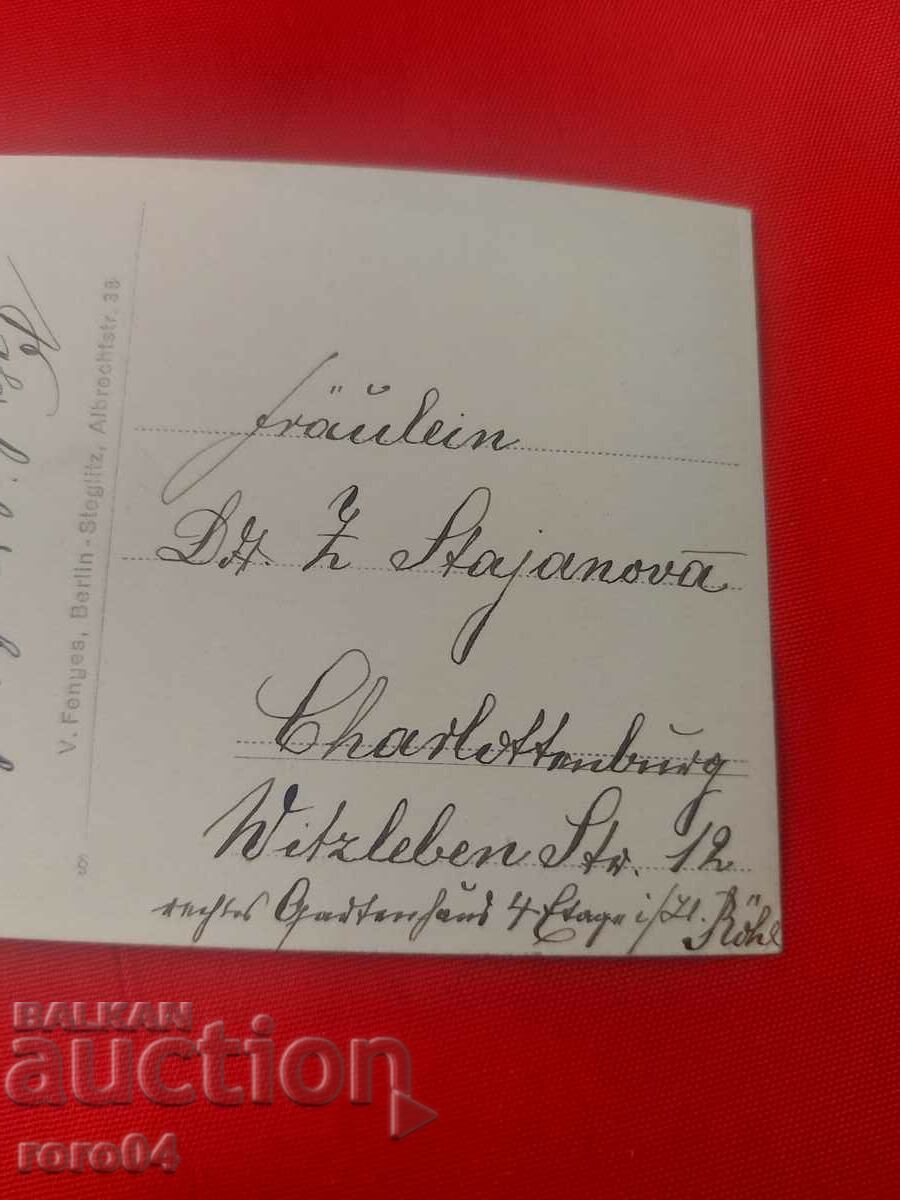 V. Fenyes, Berlin - Steglitz, Albrechtstr. 38
S
Fräulein
Dr. Z Stajanova
Charlottenburg
Witzleben Str. 12
rechtes Gartenhaus 4 Etage Röhl
BALKAN
auction
roro04